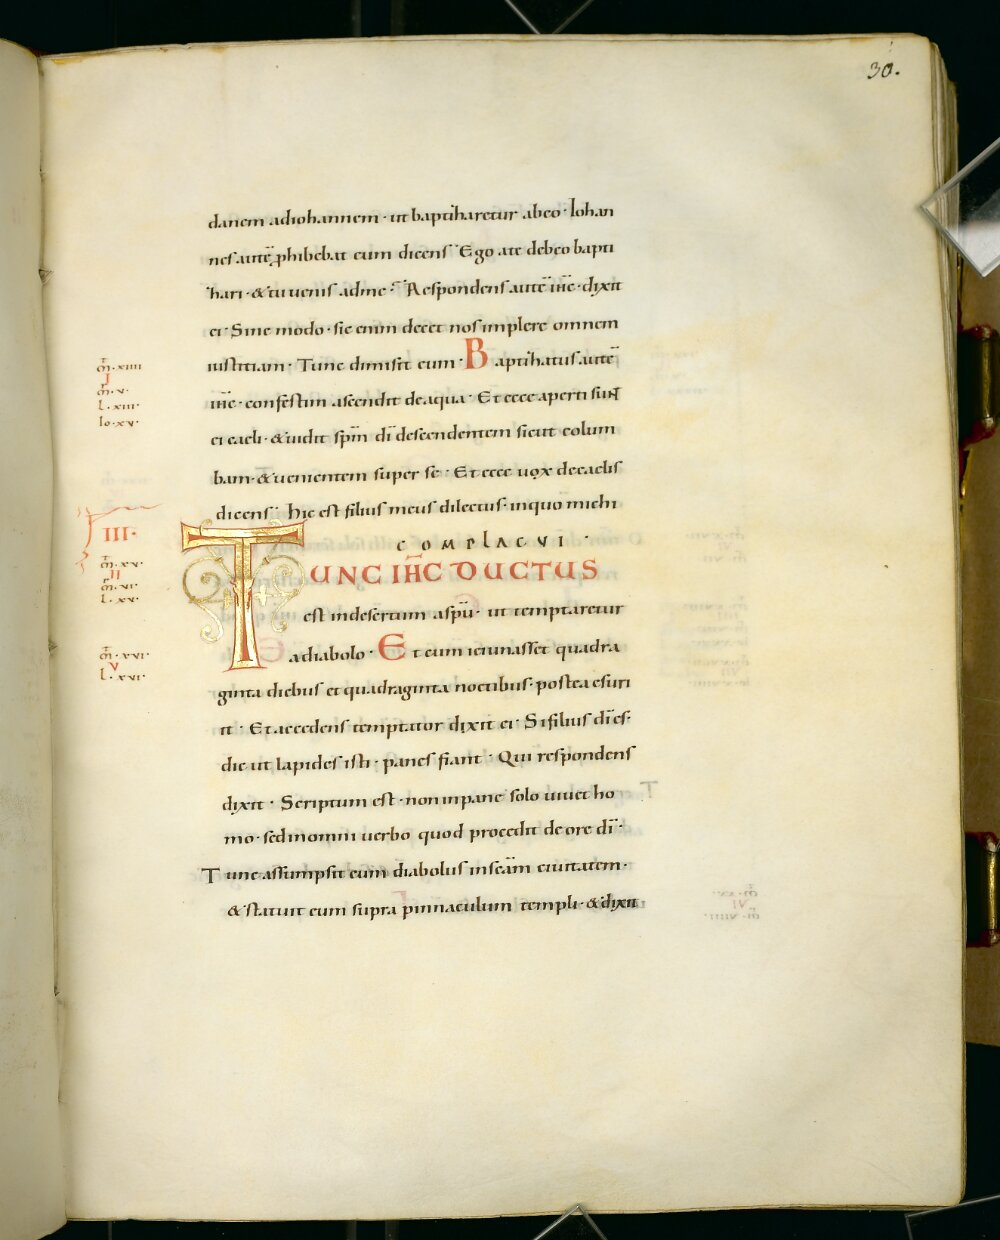 30.
danem adiohannem · ut baptiharetur abeo · Iohan
nes autē phibebat eum dicens · Ego ate debeo bapti
hari · & tu uenis adme · Respondens autē ihc̄ · dixit
ei · Sine modo · sic enim decet nos implere omnem
iustitiam · Tunc dimisit eum · Baptihatus autē
ihc̄ · confestim ascendit deaqua · Et ecce aperti sunt
ei caeli · & uidit sp̄m dī descendentem sicut colum
bam · & uenientem super se · Et ecce uox decaelis
dicens · hic est filius meus dilectus · inquo michi
COMPLACVI ·
TUNC IHC̄ DUCTUS
est indesertum aspū · ut temptaretur
adiabolo · Et cum ieiunasset quadra
ginta diebus et quadraginta noctibus · postea esuri
it · Et accedens temptator dixit ei · Si filius dī es ·
dic ut lapides isti · panes fiant · Qui respondens
dixit · Scriptum est · non inpane solo uiuet ho
mo · sed inomni uerbo quod procedit de ore dī ·
Tunc assumpsit eum diabolus inscām ciuitatem ·
& statuit eum supra pinnaculum templi · & dixit
m̄ · xiiii
I
m̄ · v ·
l · xiii ·
Io · xv ·
III ·
m̄ · xv ·
II
m̄ · vi ·
l · xv ·
m̄ · xvi ·
V
l · xvi ·